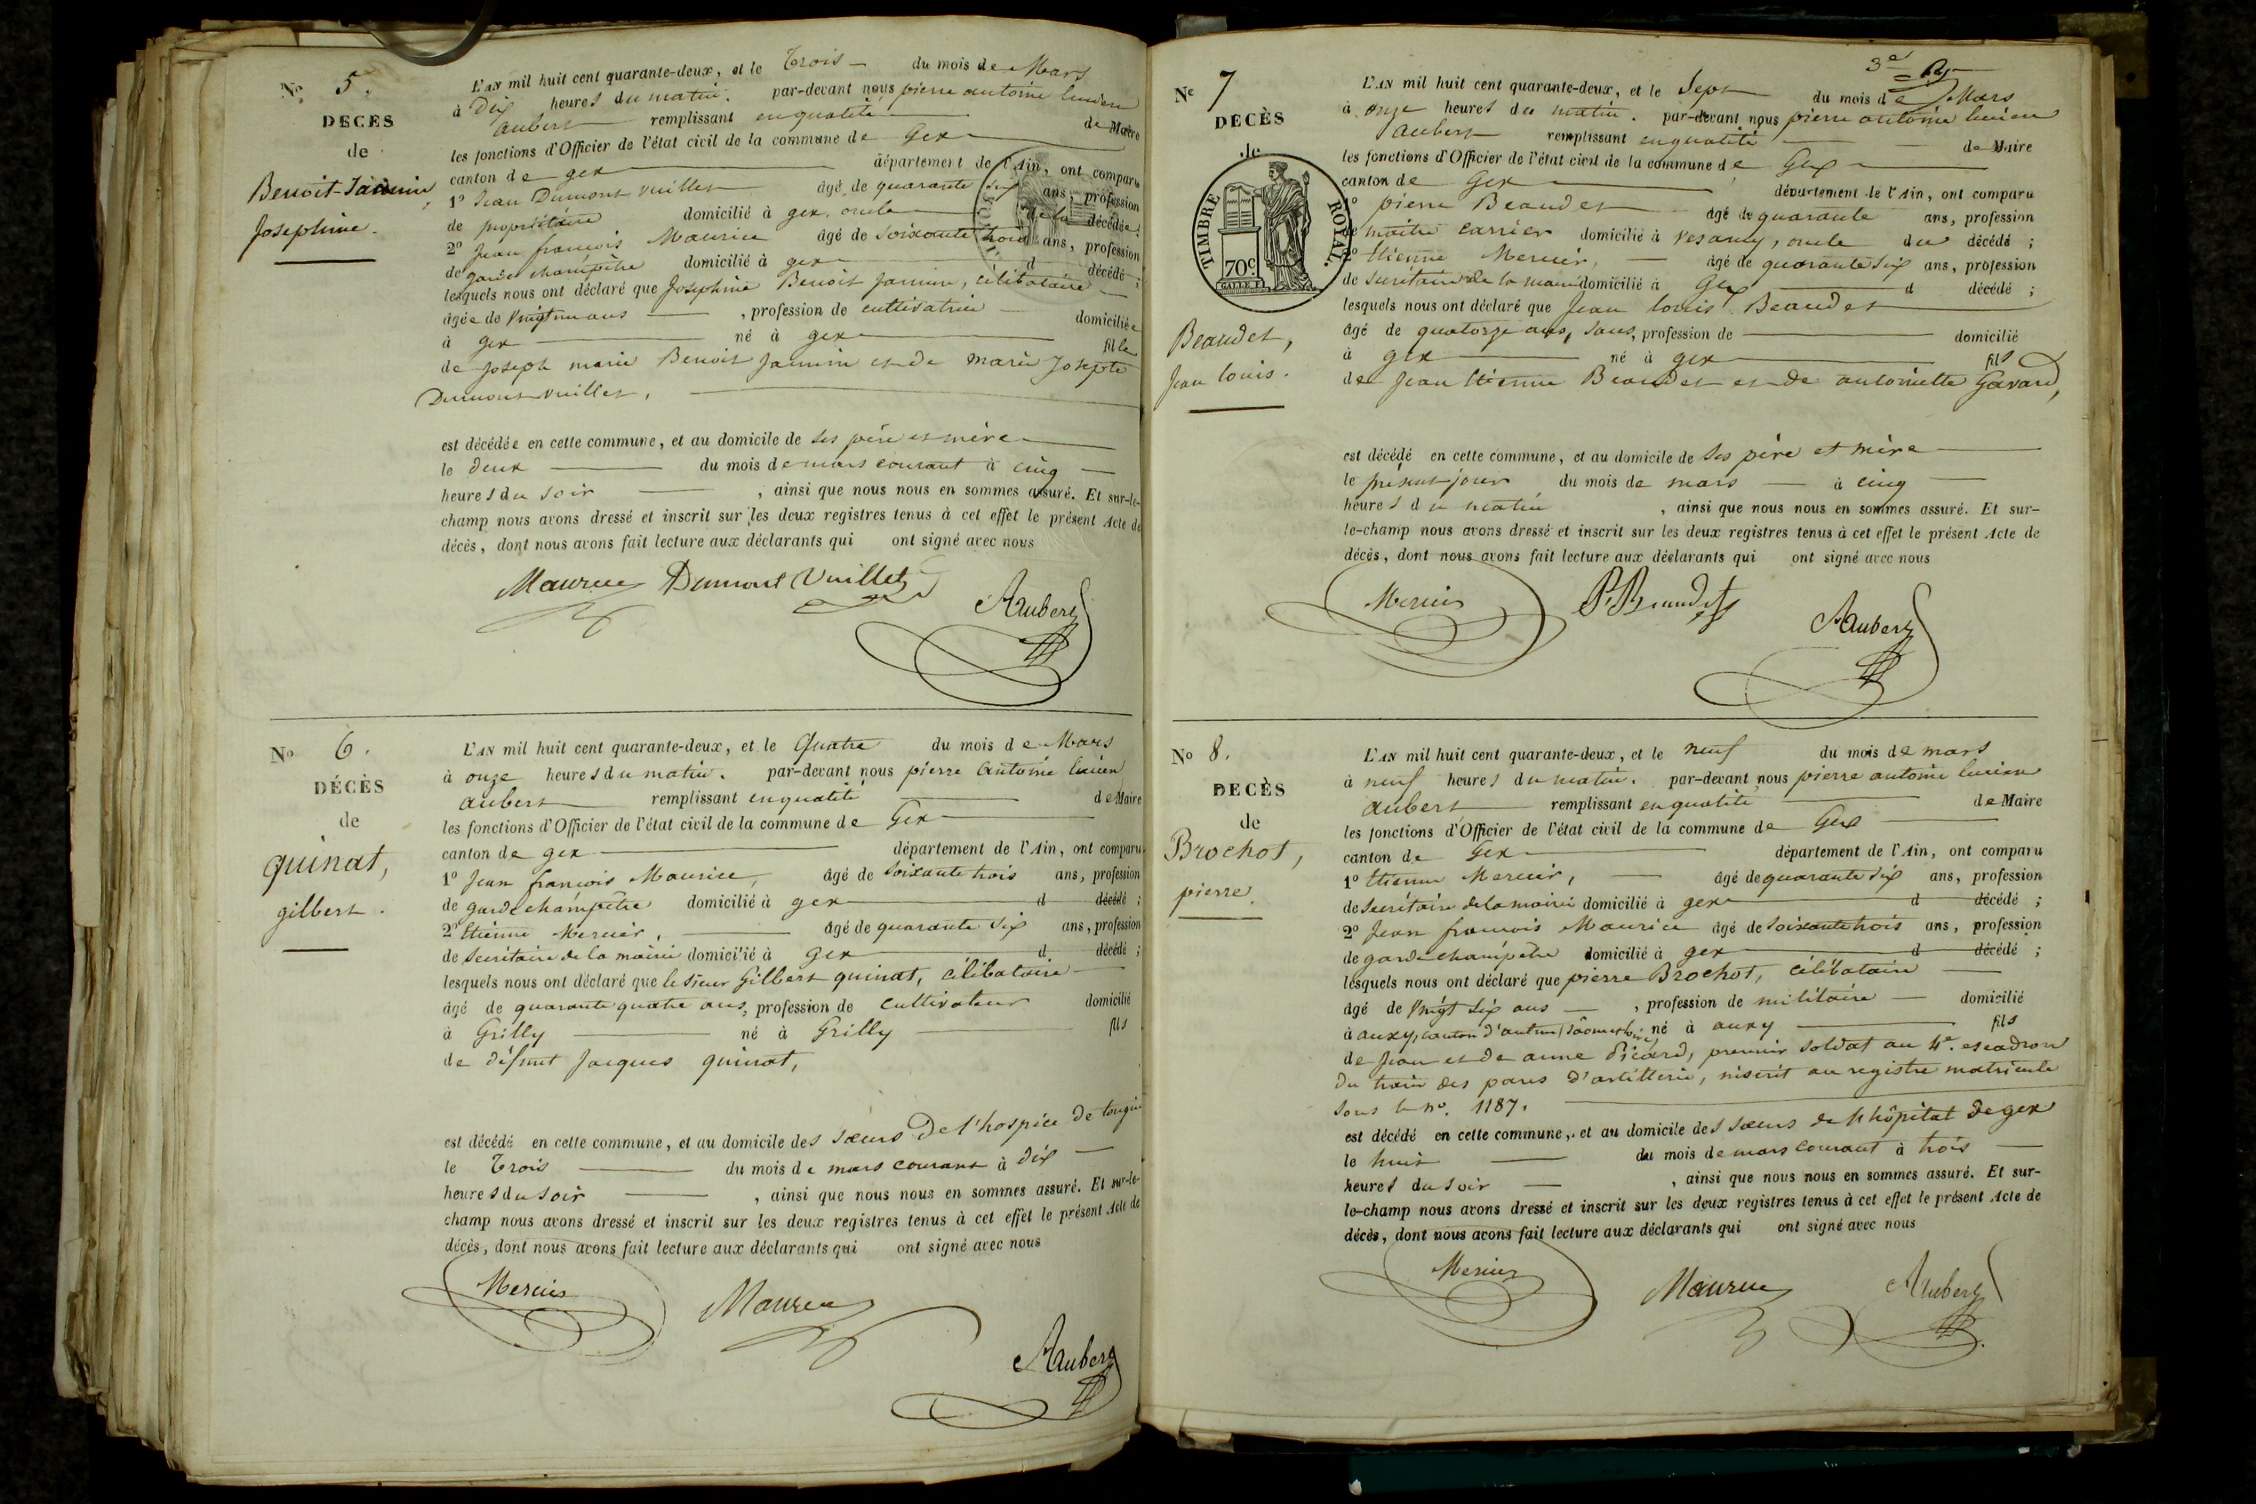 No 5.
DECES
de
Benoit-Janin,
Josephine.
L'AN mil huit cent quarante-deux, et le Trois du mois de Mars
à Dix heures du matin. par-devant nous pierre antoine lucien
aubert remplissant en qualité de Maire
les fonctions d'Officier de l'état civil de la commune de Gex
canton de gex département de l'Ain, ont comparu
1o Jean Dumont vuillet âgé de quarante six ans, profession
de propriétaire domicilié à gex, oncle de la décédée;
2o Jean françois Maurice âgé de soixante trois ans, profession
de garde champêtre domicilié à gex d décédé;
lesquels nous ont déclaré que Josephine Benoit Janin, célibataire
âgée de vingt un ans, profession de cultivatrice domiciliée
à gex né à gex fille
de Joseph marie Benoit Janin et de marie Josephte
Dumont vuillet,
est décédée en cette commune, et au domicile de ses père et mère
le deux du mois de mars courant à cinq
heures du soir, ainsi que nous nous en sommes assuré. Et sur-le-
champ nous avons dressé et inscrit sur les deux registres tenus à cet effet le présent Acte de
décès, dont nous avons fait lecture aux déclarants qui ont signé avec nous
Maurice Dumont Vuillet
Aubert
No 6.
DÉCÈS
de
quinat,
gilbert.
L'AN mil huit cent quarante-deux, et le Quatre du mois de Mars
à onze heures du matin. par-devant nous pierre antoine lucien
aubert remplissant en qualité de Maire
les fonctions d'Officier de l'état civil de la commune de Gex
canton de gex département de l'Ain, ont comparu
1o Jean françois Maurice, âgé de soixante trois ans, profession
de garde champêtre domicilié à gex d décédé;
2o Etienne Mercier, âgé de quarante six ans, profession
de secrétaire de la mairie domicilié à gex d décédé;
lesquels nous ont déclaré que le sieur Gilbert quinat, célibataire
âgé de quarante quatre ans, profession de cultivateur domicilié
à Grilly né à Grilly fils
de défunt Jacques quinat,
est décédé en cette commune, et au domicile des sœurs De l'hospice de tougin
le Trois du mois de mars courant à dix
heures du soir, ainsi que nous nous en sommes assuré. Et sur-le-
champ nous avons dressé et inscrit sur les deux registres tenus à cet effet le présent Acte de
décès, dont nous avons fait lecture aux déclarants qui ont signé avec nous
Mercier Maurice
Aubert
3e
No 7
DÉCÈS
de
TIMBRE ROYAL.
70c
Beaudet,
Jean louis.
L'AN mil huit cent quarante-deux, et le Sept du mois de Mars
à onze heures du matin. par-devant nous pierre antoine lucien
aubert remplissant en qualité de Maire
les fonctions d'Officier de l'état civil de la commune de Gex
canton de Gex département de l'Ain, ont comparu
1o pierre Beaudet âgé de quarante ans, profession
de maître carrier domicilié à vesancy, oncle du décédé;
2o Etienne Mercier, âgé de quarante six ans, profession
de secrétaire de la mairie domicilié à Gex d décédé;
lesquels nous ont déclaré que Jean louis Beaudet
âgé de quatorze ans, sans, profession de domicilié
à gex né à gex fils
de Jean Etienne Beaudet et de antoinette Gavard,
est décédé en cette commune, et au domicile de ses père et mère
le présent jour du mois de mars à cinq
heures du matin, ainsi que nous nous en sommes assuré. Et sur-
le-champ nous avons dressé et inscrit sur les deux registres tenus à cet effet le présent Acte de
décès, dont nous avons fait lecture aux déclarants qui ont signé avec nous
Mercier P. Beaudet
Aubert
No 8.
DECÈS
de
Brochot,
pierre.
L'AN mil huit cent quarante-deux, et le neuf du mois de mars
à neuf heures du matin. par-devant nous pierre antoine lucien
aubert remplissant en qualité de Maire
les fonctions d'Officier de l'état civil de la commune de Gex
canton de Gex département de l'Ain, ont comparu
1o Etienne Mercier, âgé de quarante six ans, profession
de secrétaire de la mairie domicilié à gex d décédé;
2o Jean françois Maurice âgé de soixante trois ans, profession
de garde champêtre domicilié à gex d décédé;
lesquels nous ont déclaré que pierre Brochot, célibataire
âgé de vingt six ans, profession de militaire domicilié
à auxy, canton d'autun (Saône et loire) né à auxy fils
de Jean et de anne Picard, premier soldat au 4e. escadron
du train des parcs d'artillerie, inscrit au registre matricule
sous le no. 1187.
est décédé en cette commune, et au domicile des sœurs de l'hôpital de gex
le huit du mois de mars courant à trois
heures du soir, ainsi que nous nous en sommes assuré. Et sur-
le-champ nous avons dressé et inscrit sur les deux registres tenus à cet effet le présent Acte de
décès, dont nous avons fait lecture aux déclarants qui ont signé avec nous
Mercier Maurice Aubert